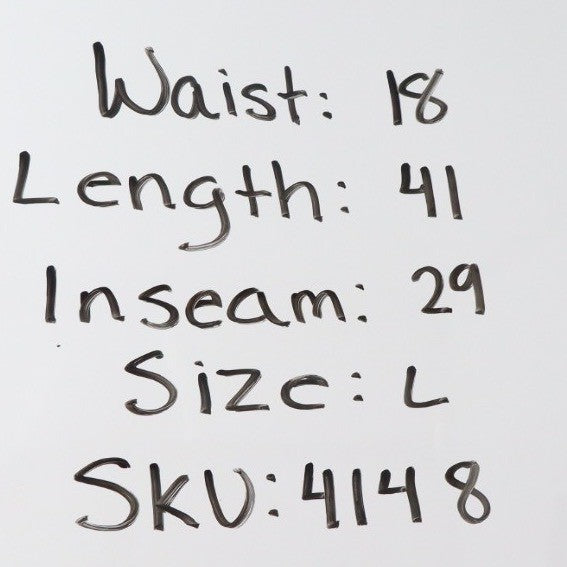 Waist: 18
Length: 41
Inseam: 29
Size: L
SKU: 4148